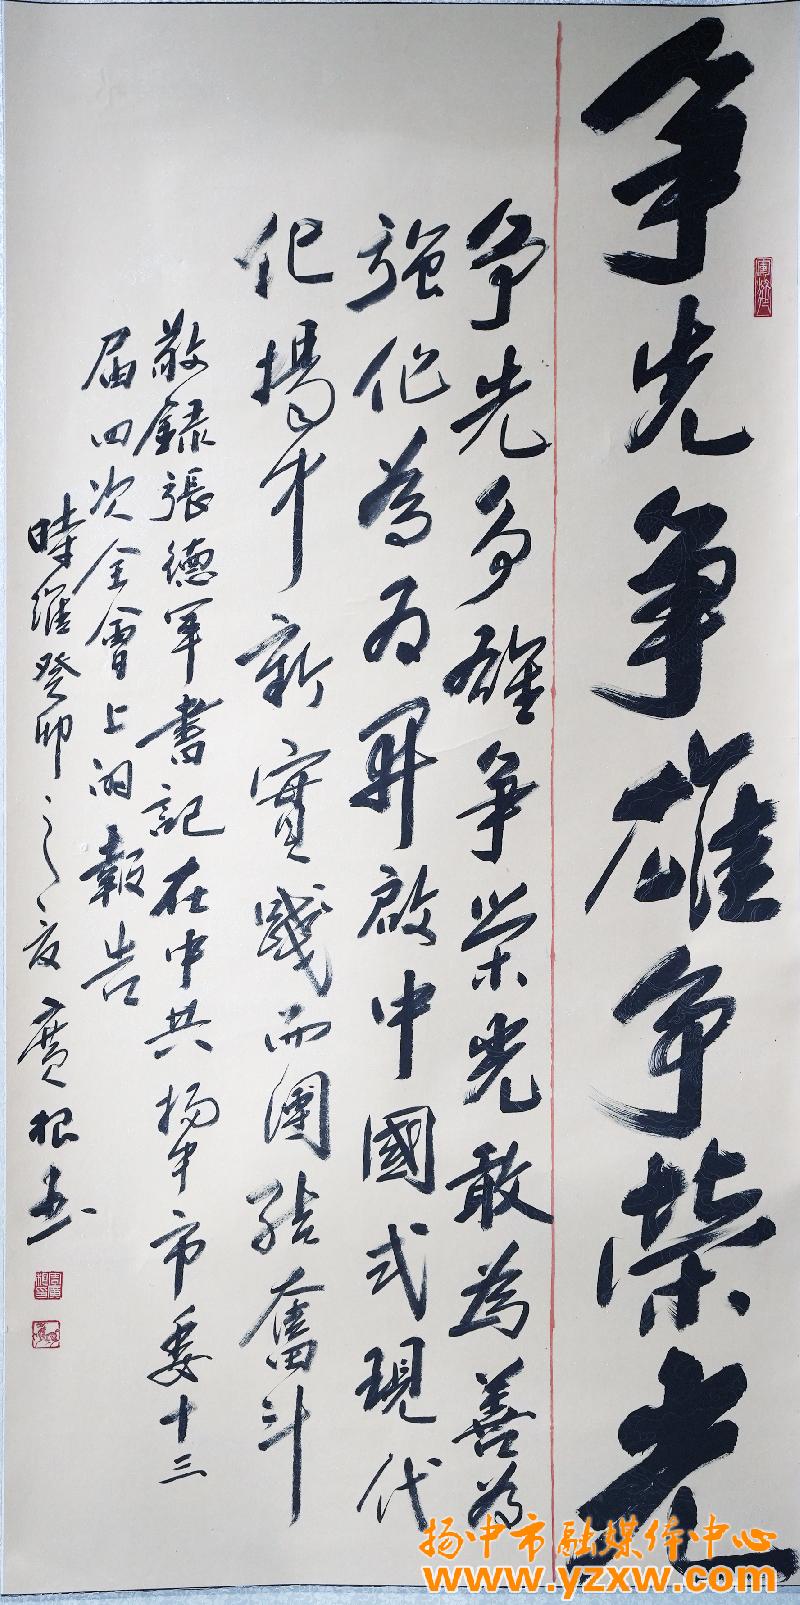 争先争雄争荣光
争先争雄争荣光敢為善為
強化為为開啟中國式現代
化揚中新實踐而團结奮斗
敬録張德军書記在中共揚中市委十三
届四次全會上的報告
時維癸卯之夏廣根書
扬中市融媒体中心
www.yzxw.com